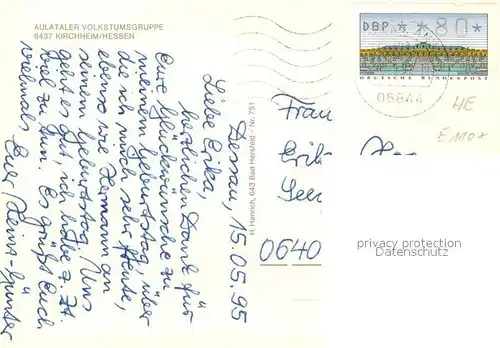 AULATALER VOLKSTUMSGRUPPE
6437 KIRCHHEIM/HESSEN
Dessau, 15.05.95
Liebe Erika,
herzlichen Dank für
Eure Glückwünsche zu
meinem Geburtstag, über
die ich mich sehr freute,
ebenso wie Hermann an
seinem Geburtstag. Uns
geht es gut, ich habe z. Zt.
viel zu tun. Es grüßt Euch
vielmals Euer Heinz-Günter
H. Henrich, 643 Bad Hersfeld - Nr. 751
DBP * * 80 *
DEUTSCHE BUNDESPOST
06844
HE
E110x
Frau
0640
privacy protection
Datenschutz